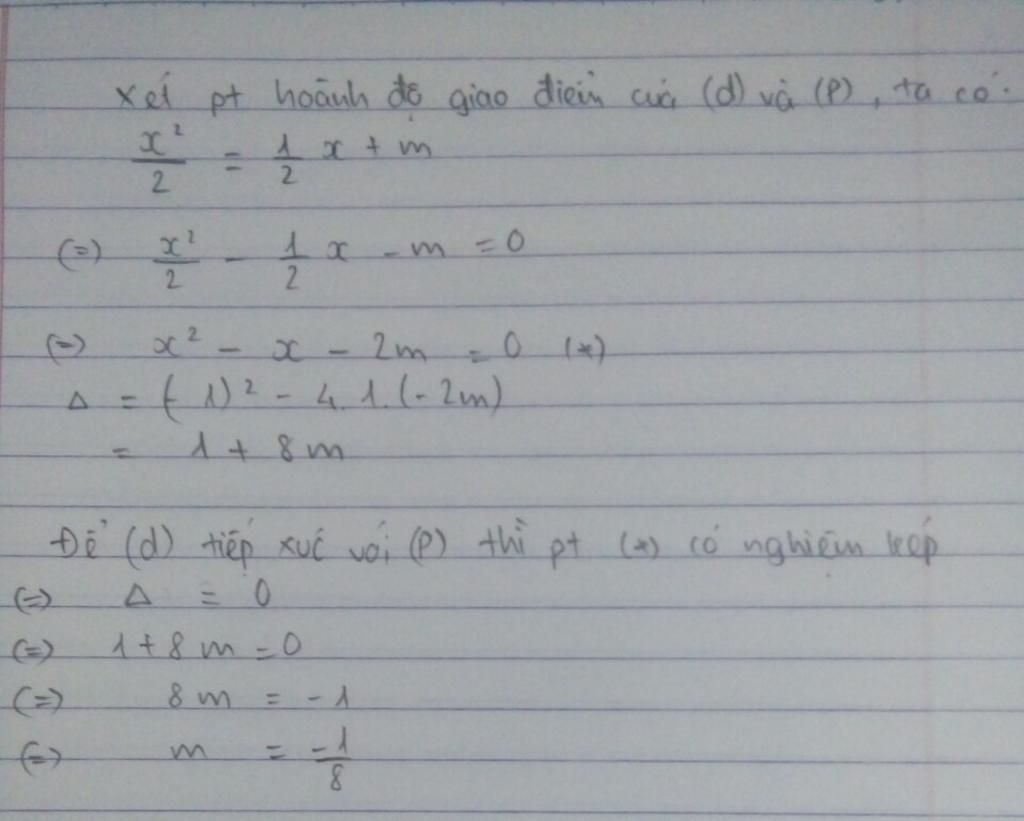 Xét pt hoành độ giao điểm của (d) và (P), ta có:
x²/2 = 1/2 x + m
(=) x²/2 - 1/2 x - m = 0
(=) x² - x - 2m = 0 (*)
Δ = (-1)² - 4.1.(-2m)
= 1 + 8m
Để (d) tiếp xúc với (P) thì pt (*) có nghiệm kép
(=) Δ = 0
(=) 1 + 8m = 0
(=) 8m = -1
(=) m = -1/8